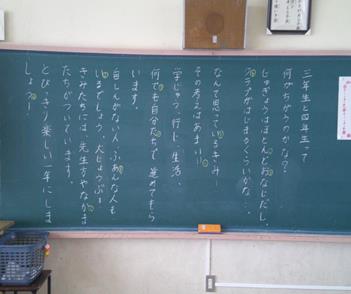 三年生と四年生って
何がちがうのかな?
じゅぎょうはほとんどおなじだし、
クラブがはじまるくらいかな…
なんて思っているきみ!
その考えはあまい!!
学じゅう、行じ、生活、
何でも自分たちで進めてもら
います。
自しんがない人、ふあんな人も
いるでしょう。大じょうぶ!
きみたちには、先生方やなかま
たちがついています。
とびっきり楽しい一年にしま
しょう!